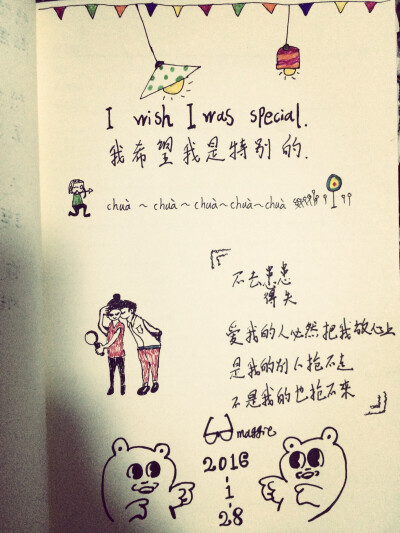 I wish I was special.
我希望我是特别的.
chuà ~ chuà ~ chuà ~ chuà ~ chuà
『
不去患患
得失
爱我的人必然把我放心上
是我的别人抢不走
不是我的也抢不来
』
maggie
2016
-
1
-
28